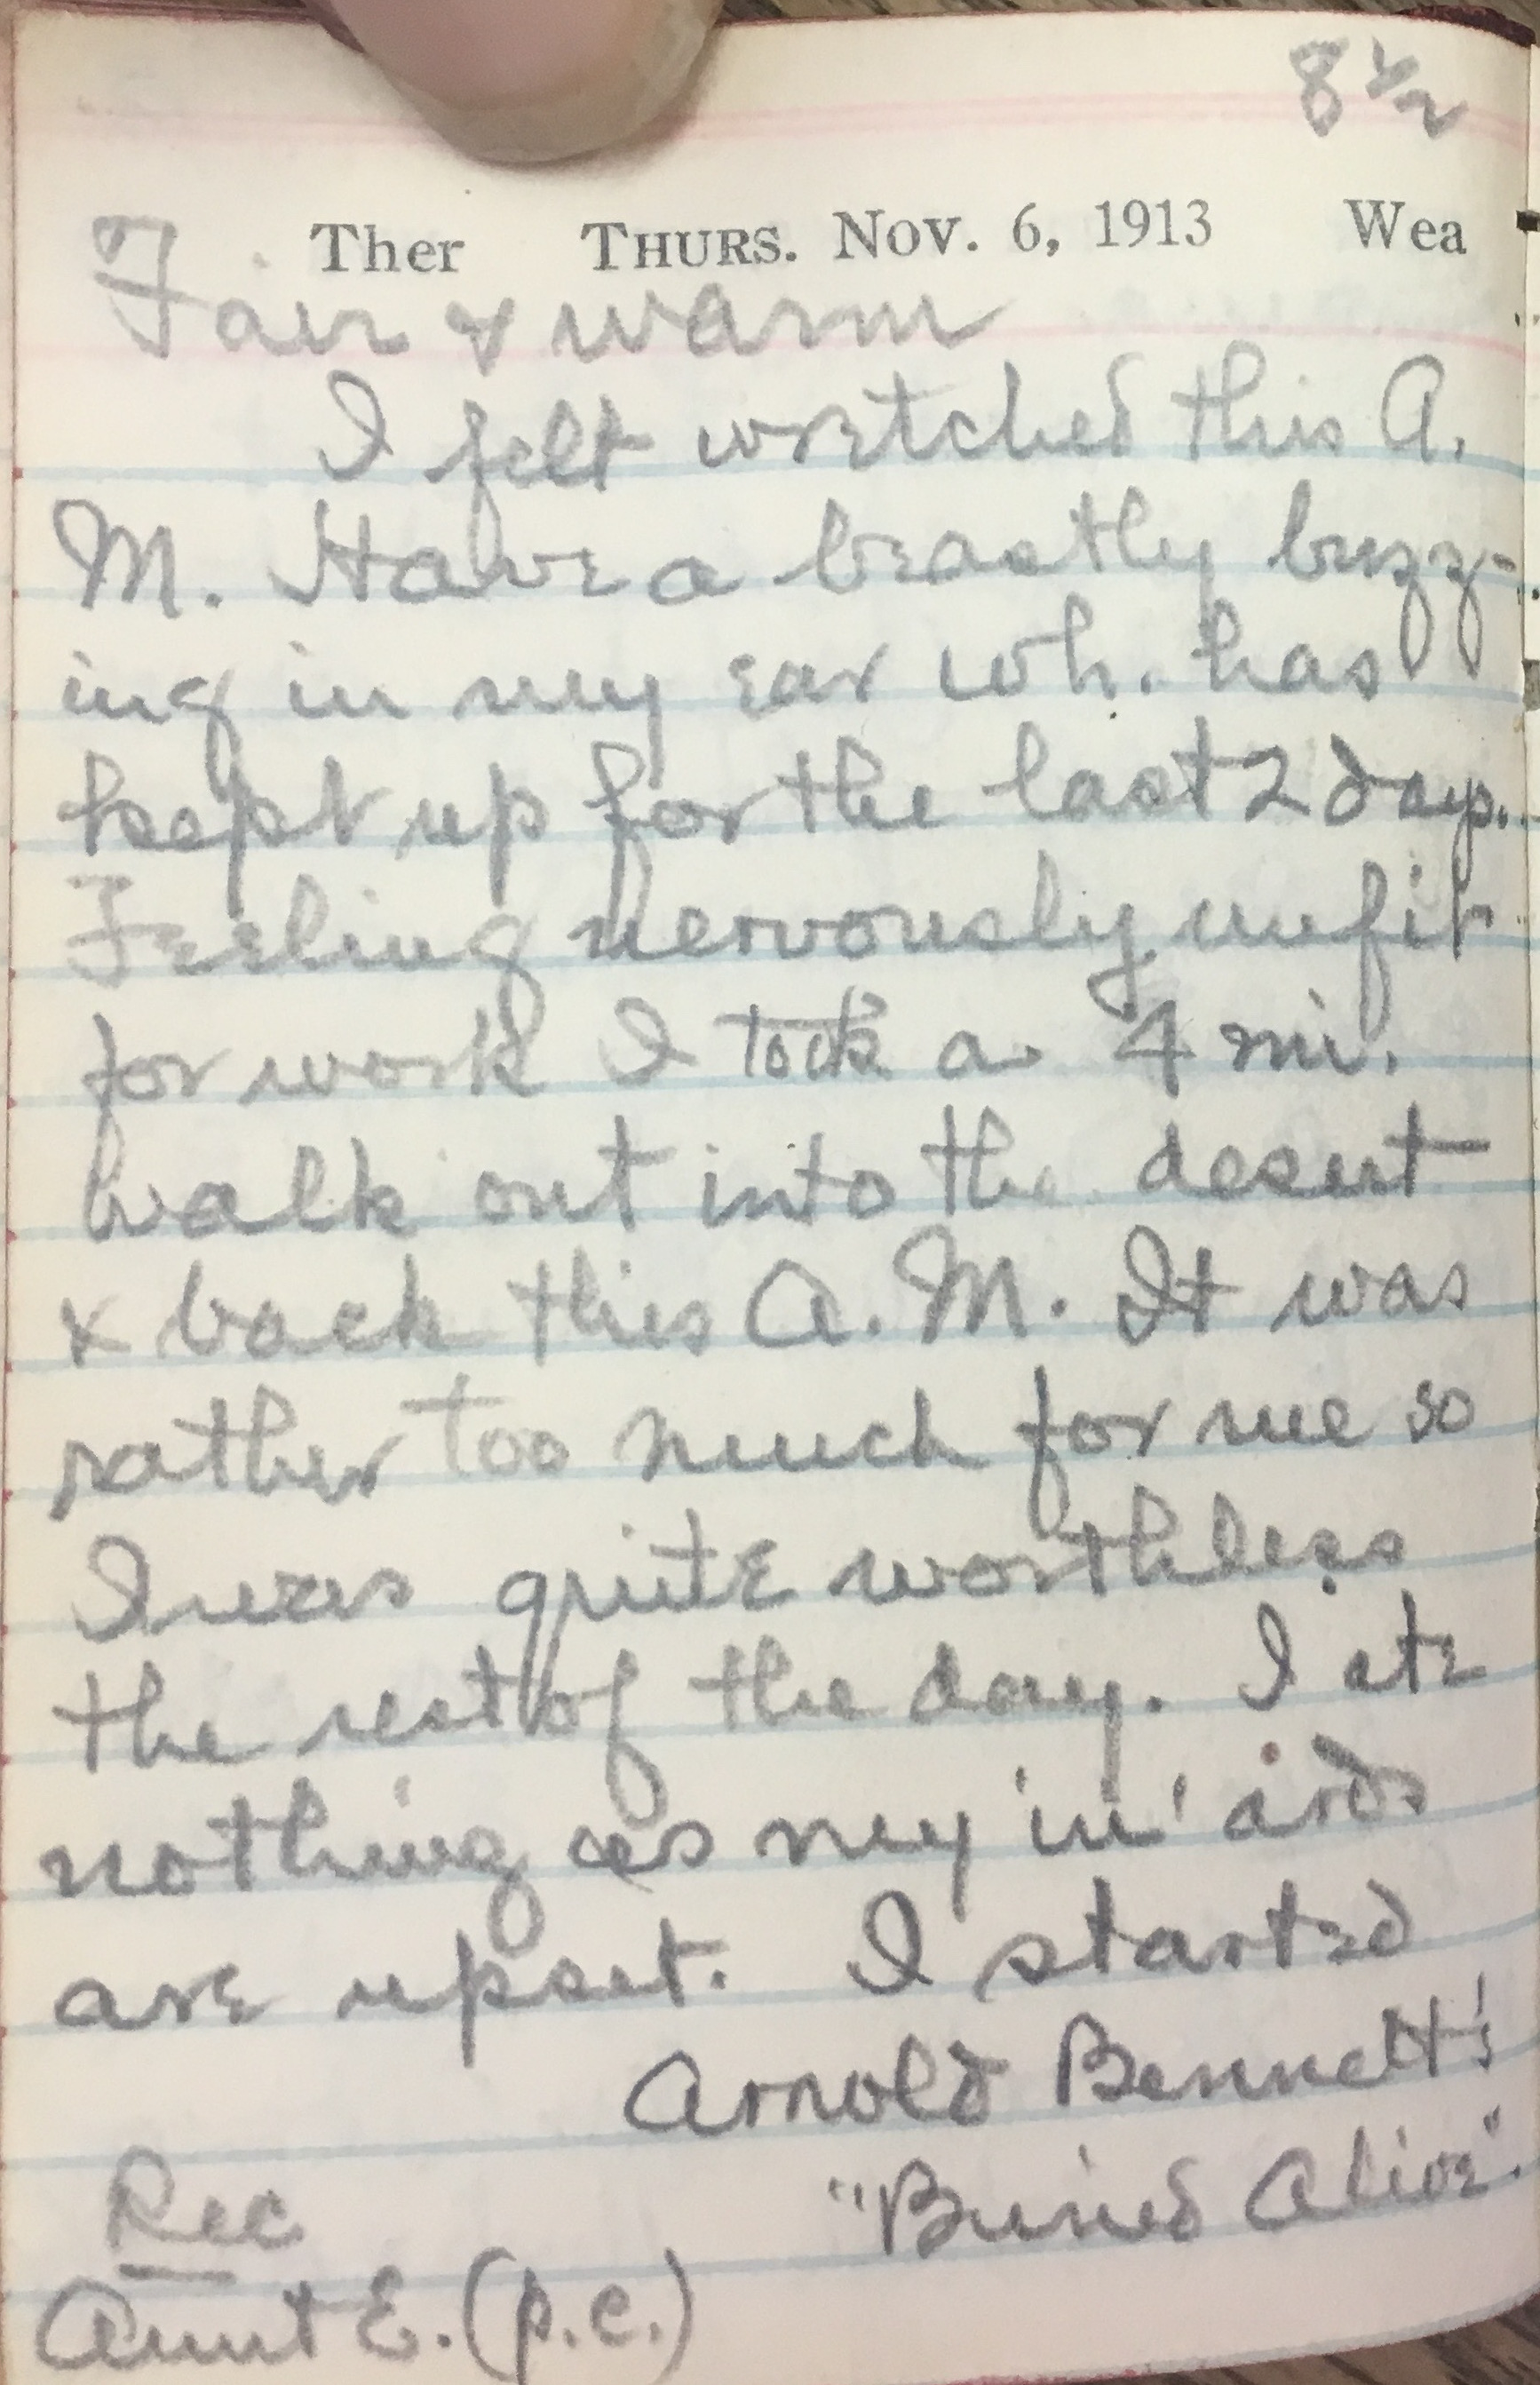 8 1/2
Ther THURS. NOV. 6, 1913 Wea
Fair & warm
I felt wretched this A.
M. Have a beastly buzz-
ing in my ear wh. has
kept up for the last 2 days.
Feeling nervously unfit
for work I took a 4 mi.
walk out into the desert
& back this A.M. It was
rather too much for me so
I was quite worthless
the rest of the day. I ate
nothing as my 'in'ards
are upset. I started
Arnold Bennett's
"Buried Alive".
Rec
Aunt E. (p.c.)